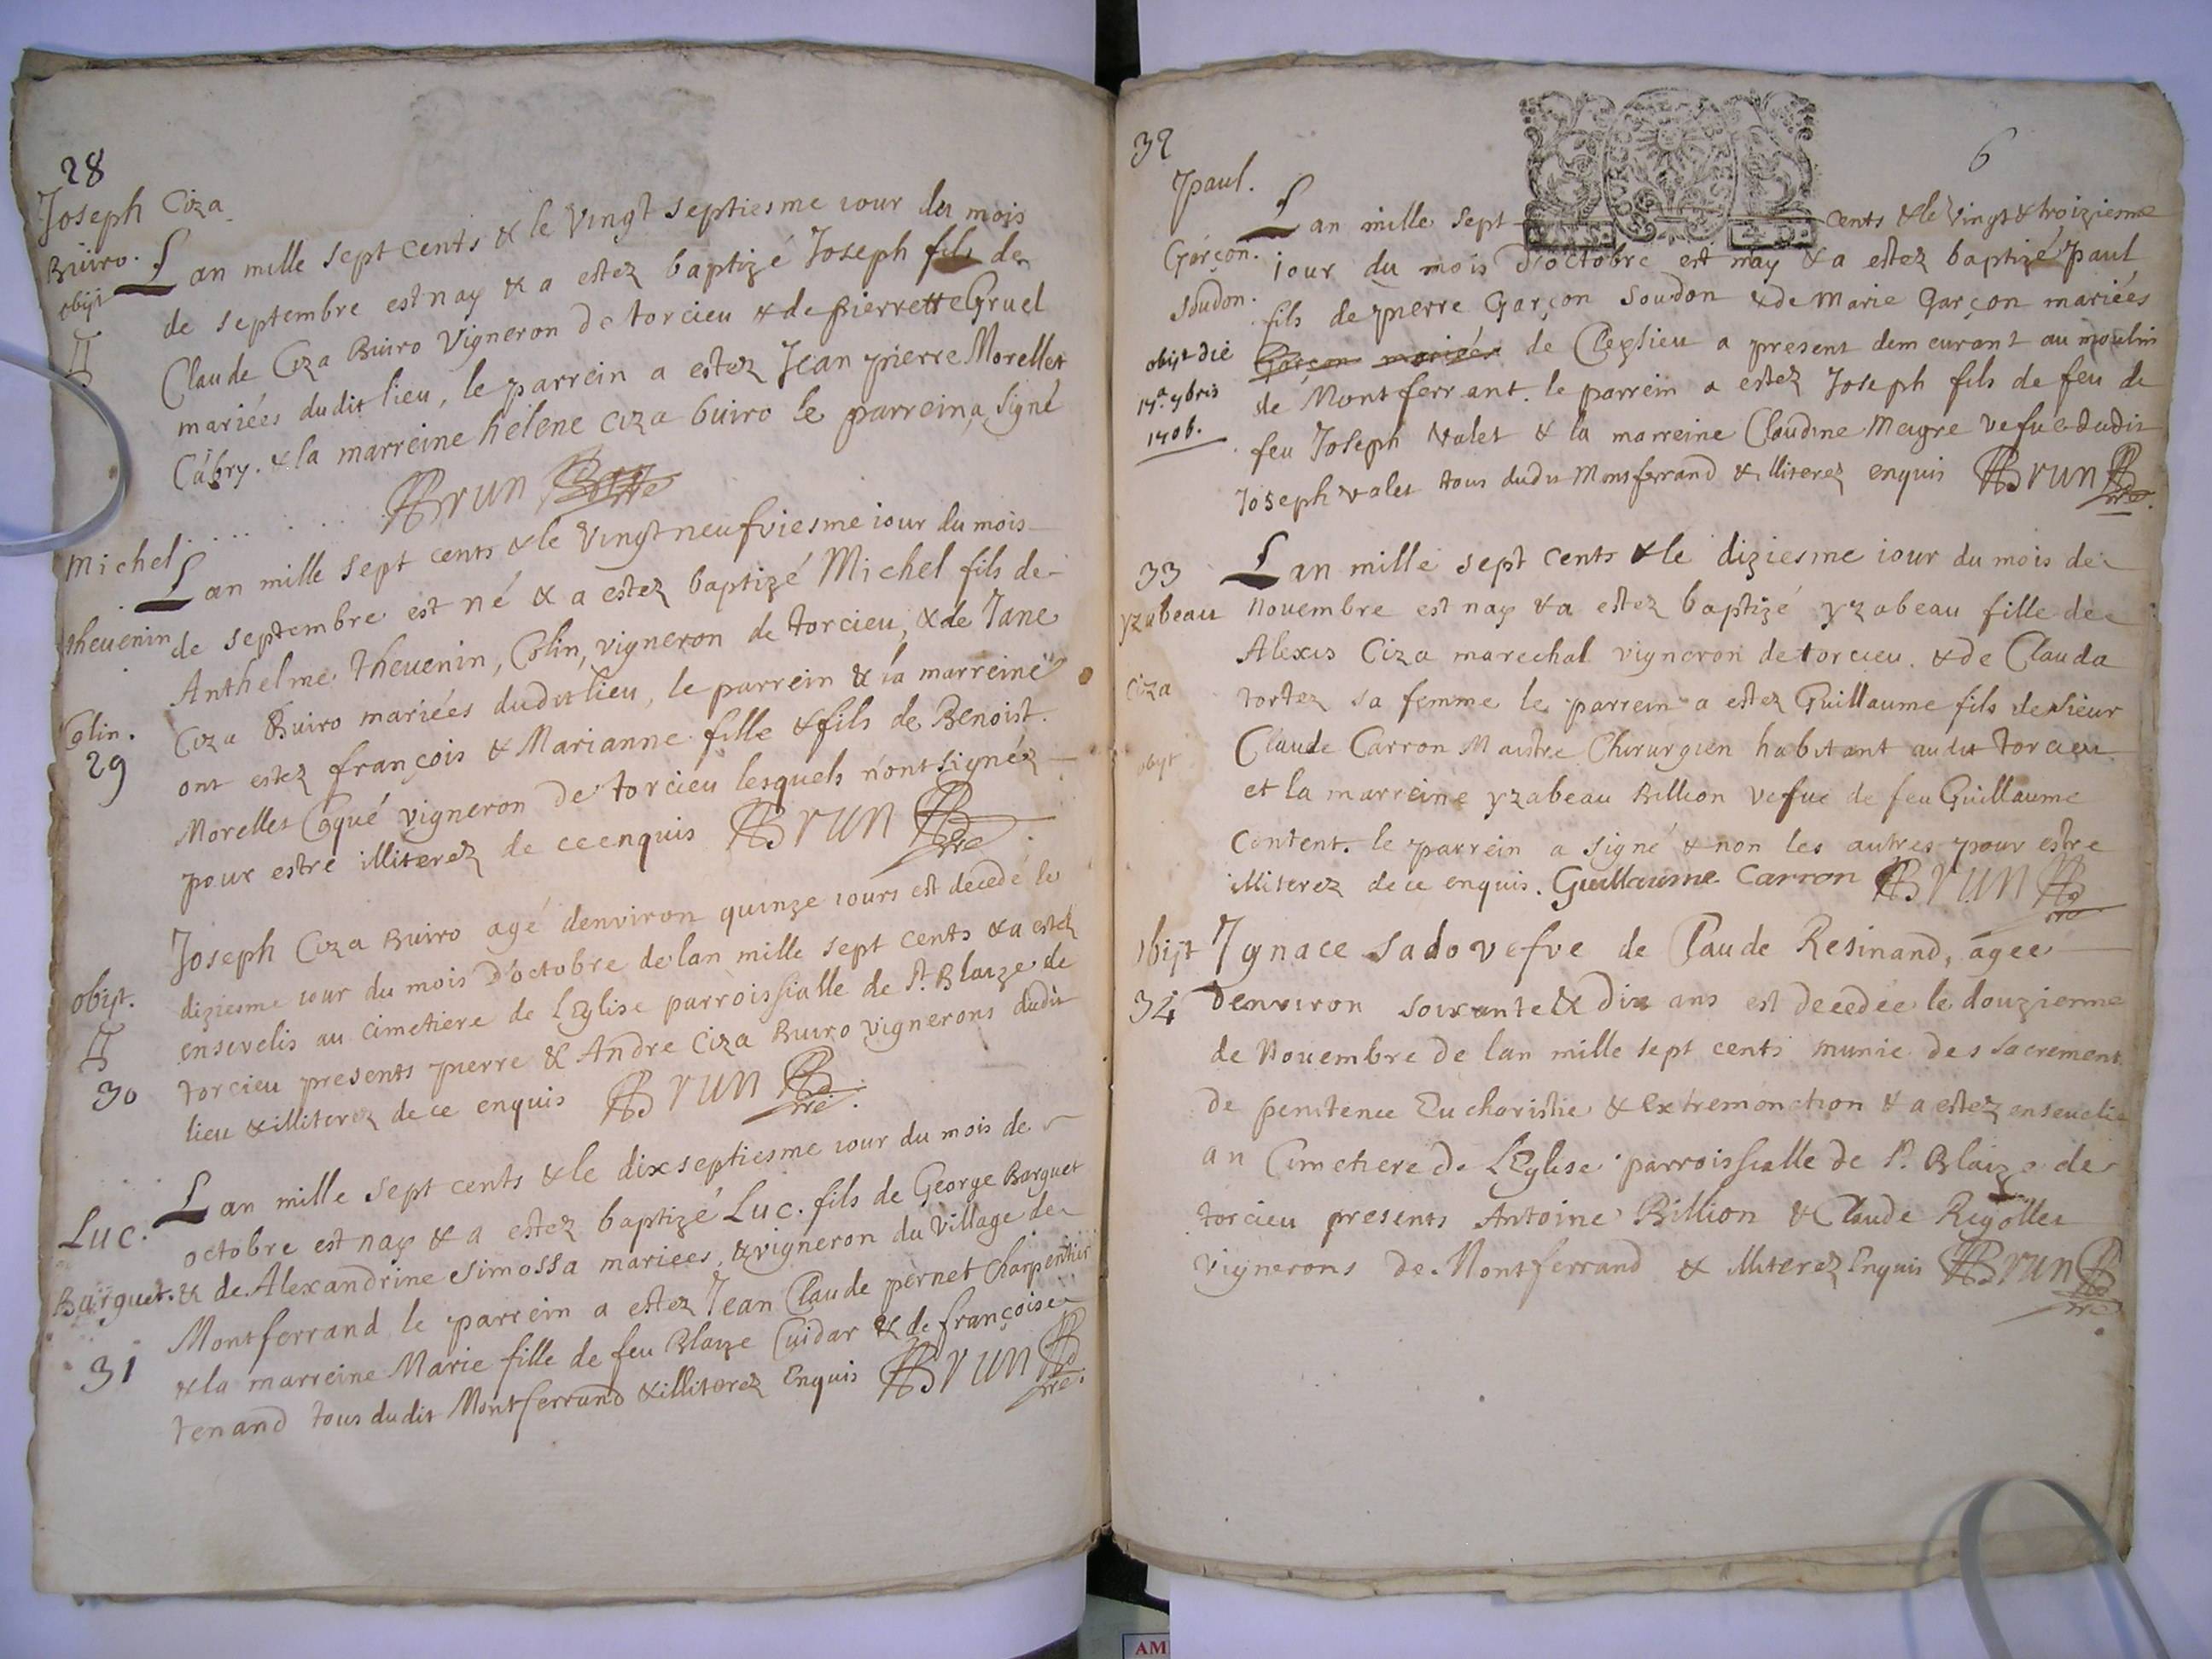 28
Joseph Ciza
Buiro.
obijt
Lan mille sept cents & le vingt septiesme iour du mois
de septembre est nay & a estez baptizé Joseph fils de
Claude Ciza Buiro vigneron de torcieu & de Pierrette Gruel
mariées dudit lieu, le parrein a estez Jean pierre Morellet
Cabry. & la marreine helene ciza buiro le parrein a signé
Brun
Michel
thevenin
Colin.
29
Lan mille sept cents & le vingt neufviesme iour du mois
de septembre est né & a estez baptizé Michel fils de
Anthelme thevenin, Colin, vigneron de torcieu, & de Jane
Ciza Buiro mariées dudit lieu, le parrein & la marreine
ont estez françois & Marianne fille & fils de Benoist
Morellet Coqué vigneron de torcieu lesquels n'ont signéz
pour estre illiterez de ce enquis Brun
obijt.
30
Joseph Ciza Buiro agé denviron quinze iours est decedé le
diziesme iour du mois d'octobre de lan mille sept cents & a estez
ensevelis au cimetiere de lEglise parroissialle de St. Blaize de
torcieu presents pierre & Andre Ciza Buiro vignerons dudit
lieu & illiterez de ce enquis Brun
Luc.
Barguet.
31
Lan mille sept cents & le dix septiesme iour du mois de
octobre est nay & a estez baptizé Luc. fils de George Barguet
& de Alexandrine simossa mariees, & vigneron du village de
Montferrand le parrein a estez Jean Claude pernet Charpentier
& la marreine Marie fille de feu Blaize Cuidar & de françoise
tenand tous dudit Montferrand & illiterez Enquis Brun
32
6
paul.
Garçon.
Soudon.
obijt die
17a. 9bris
1706.
Lan mille sept cents & le vingt & troiziesme
iour du mois d'octobre est nay & a estez baptizé paul
fils de pierre Garçon Soudon & de Marie Garçon mariées
Garçon mariées de Cleysieu a present demeurant au moulin
de Montferrant. le parrein a estez Joseph fils de feu de
feu Joseph Valet & la marreine Claudine Meygre vefue dudit
Joseph valet tous dudit Montferrand & illiterez enquis Brun
33
yzabeau
Ciza
obijt
Lan mille sept cents & le diziesme iour du mois de
Novembre est nay & a estez baptizé yzabeau fille de
Alexis Ciza marechal vigneron de torcieu. & de Clauda
tortez sa femme le parrein a estez Guillaume fils de sieur
Claude Carron Maistre Chirurgien habitant audit torcieu
et la marreine yzabeau Billion vefue de feu Guillaume
Content. le parrein a signé & non les autres pour estre
illiterez de ce enquis. Guillaume Carron Brun
obijt
34
Ygnace Sado vefve de Claude Resinand, agee
denviron soixante & dix ans est decedée le douzieme
de Novembre de lan mille sept cents munie des sacrement
de penitence Eucharistie & extremonction & a estez ensevelie
au Cimetiere de lEglise parroissialle de St. Blaize de
torcieu presents Antoine Billion & Claude Rigollet
vignerons de Montferrand & illiterez Enquis Brun
AM